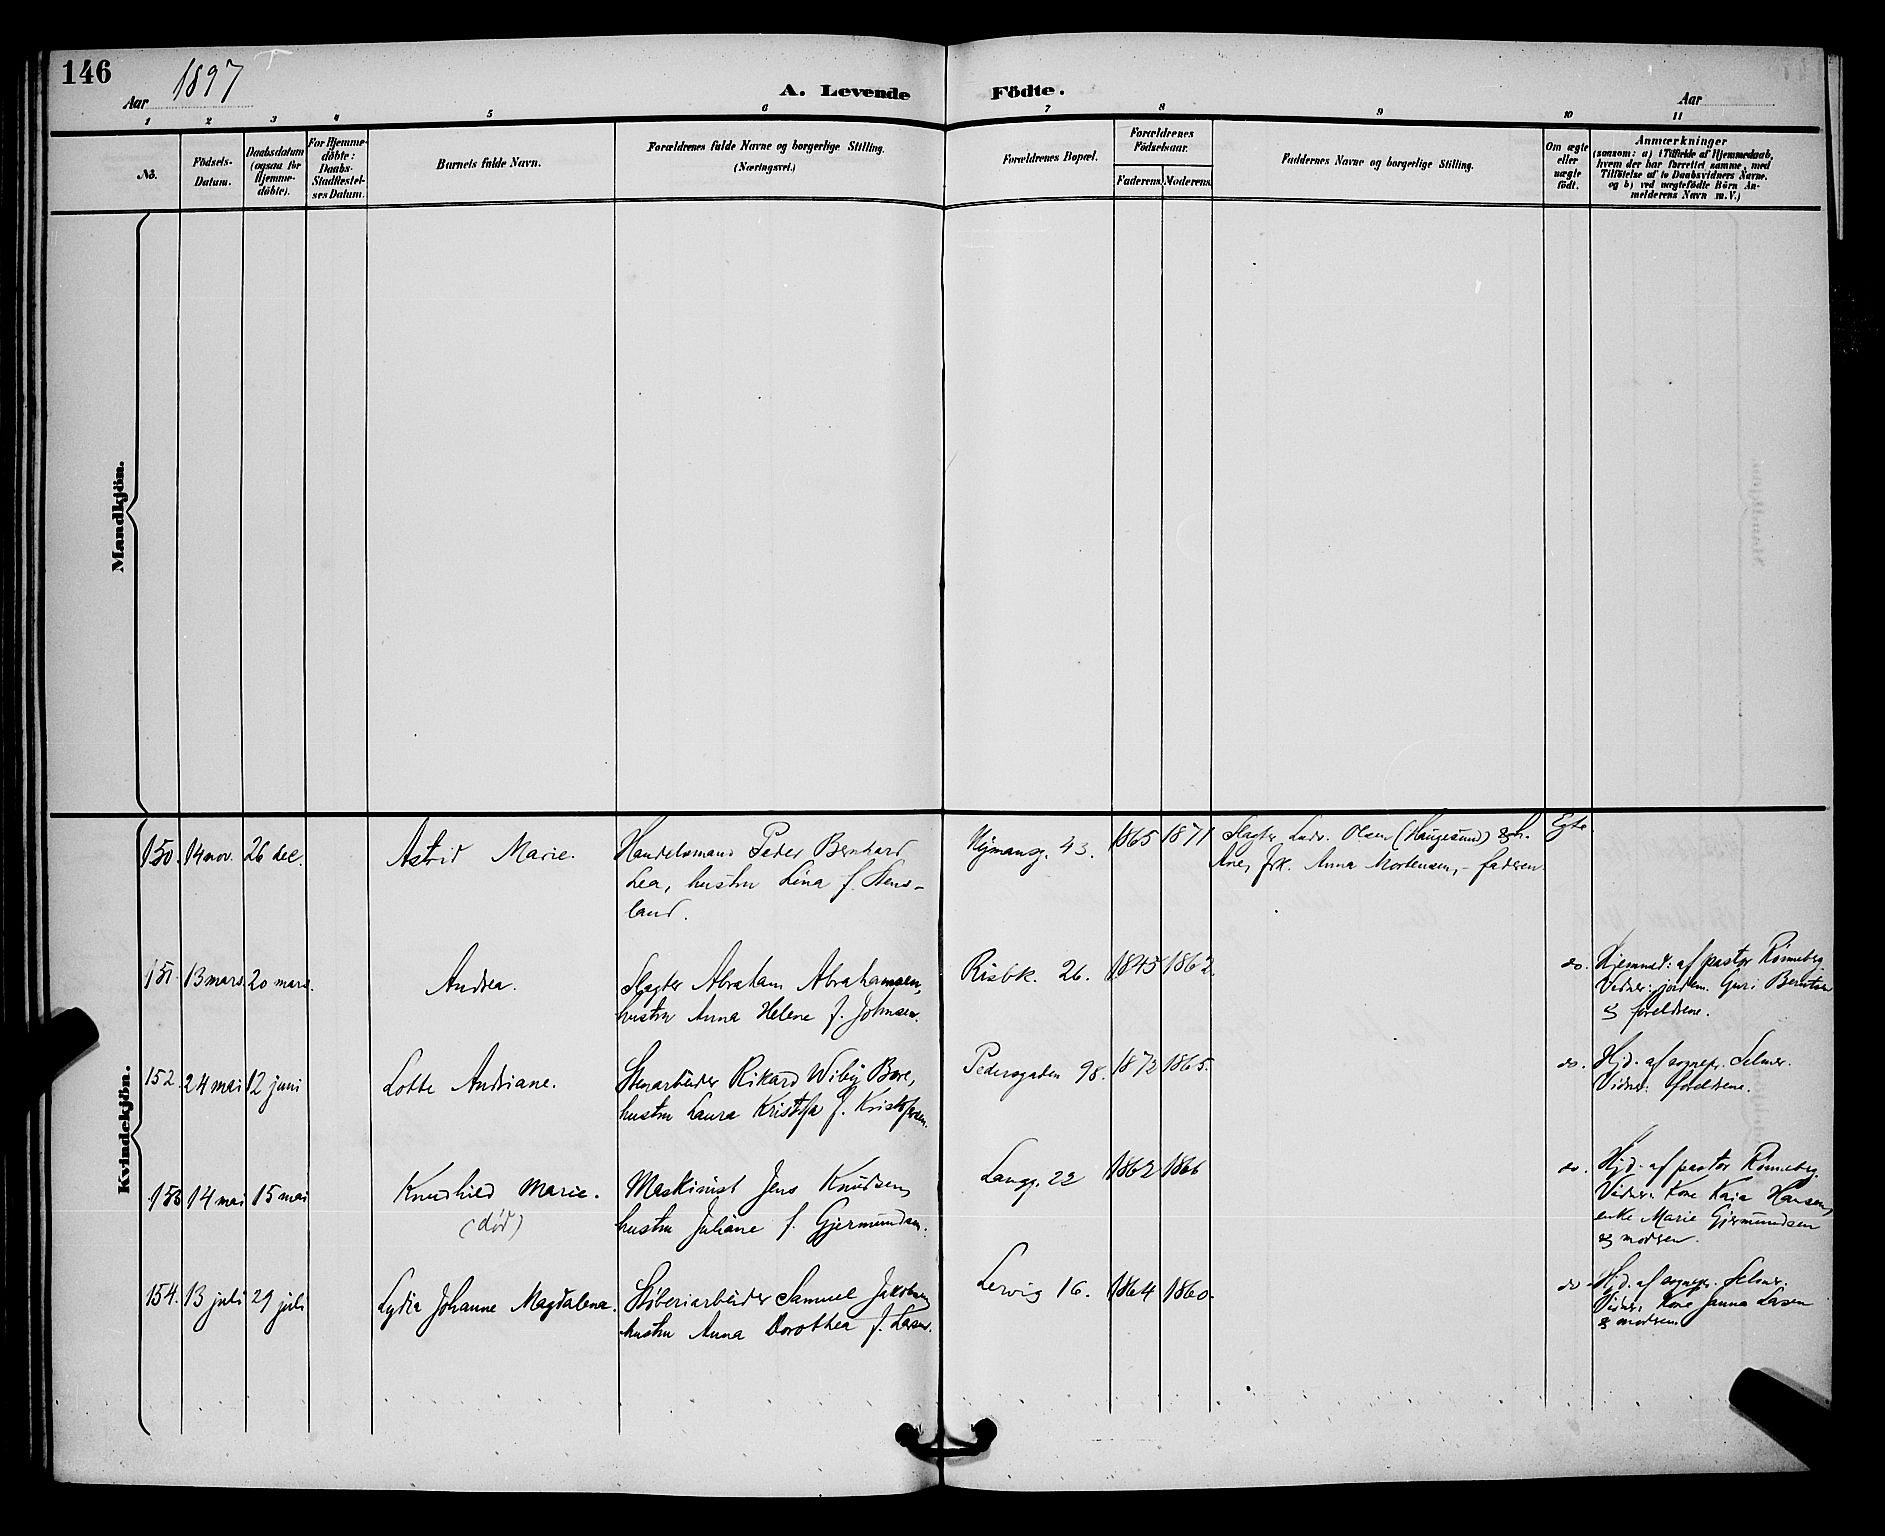 146
Aar 1897
A. Levende Födte.
Aar
1 2 3 4 5 6 7 8 9 10 11
No.
Födsels-
Datum.
Daabsdatum
(ogsaa for
Hjemme-
döbte).
For Hjemme-
döbte:
Daabs-
Stadfæstel-
ses Datum.
Barnets fulde Navn.
Forældrenes fulde Navne og borgerlige Stilling.
(Næringsvei.)
Forældrenes Bopæl.
Forældrenes
Födselsaar.
Faderens. Moderens.
Faddernes Navne og borgerlige Stilling.
Om ægte
eller
uægte
födt.
Anmærkninger
(saasom: a) i Tilfælde af Hjemmedaab,
hvem der har forrettet samme, med
Tilföielse af to Daabsvidners Navne,
og b) ved uægtefödte Börn An-
melderens Navn m. V.)
Mandkjön.
Kvindekjön.
150. 14 nov. 26 dec.
Astrid Marie.
Handelsmand Peder Bernhard
Lea, hustru Lina f. Stens-
land.
Nymansg. 43.
1865 1871
Slagter Ludv. Olsen (Haugesund) & h.
Ane, frk. Anna Mortensen, - faderen.
Egte
151. 13 mars 20 mars.
Andrea.
Slagter Abraham Abrahamsen,
hustru Anna Helene f. Johnsen.
Risbk. 26.
1845 1862.
do.
Hjemmed: af pastor Rönneberg
Vidner: jordem. Guri Berntsen
& foreldrene.
152. 24 mai 12 juni
Lotte Andriane.
Stenarbeider Rikard Wiby Bore,
hustru Laura Kristofa f. Kristofersen.
Pedersgaden 98.
1872 1865.
do.
Hjd. af sognepr. Selmer.
Vidner: foreldrene.
153 14 mai 15 mai
Knudhild Marie.
(død)
Maskinist Jens Knudsen,
hustru Juliane f. Gjermundsen.
Langg. 22
1862 1866
do.
Hjd. af pastor Rönneberg
Vidner: Kone Kaia Hansen,
enke Marie Gjermundsen
& modren.
154. 13 juli 29 juli
Lydia Johanne Magdalena.
Støberiarbeider Samuel Jakobsen
hustru Anna Dorothea f. Lasen.
Lervig 16.
1864 1860.
do
Hjd. af sognepr. Selmer.
Vidner: Kone Janna Lasen
& modren.